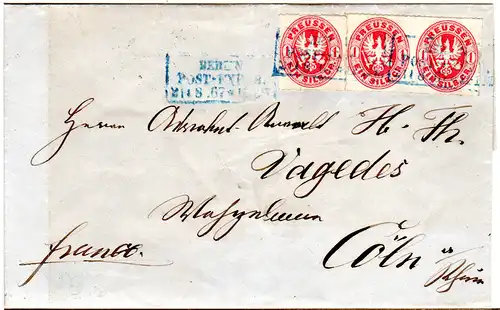 PREUSSEN EIN SILB.GR. PREUSSEN EIN SILB.GR. PREUSSEN EIN SILB.GR.
BERLIN
POST-EXP.
21 8 67
Herrn Advokat-Anwald H. Th.
Vagedes
Wohlgeboren
franco.
Cöln a/
Rhein